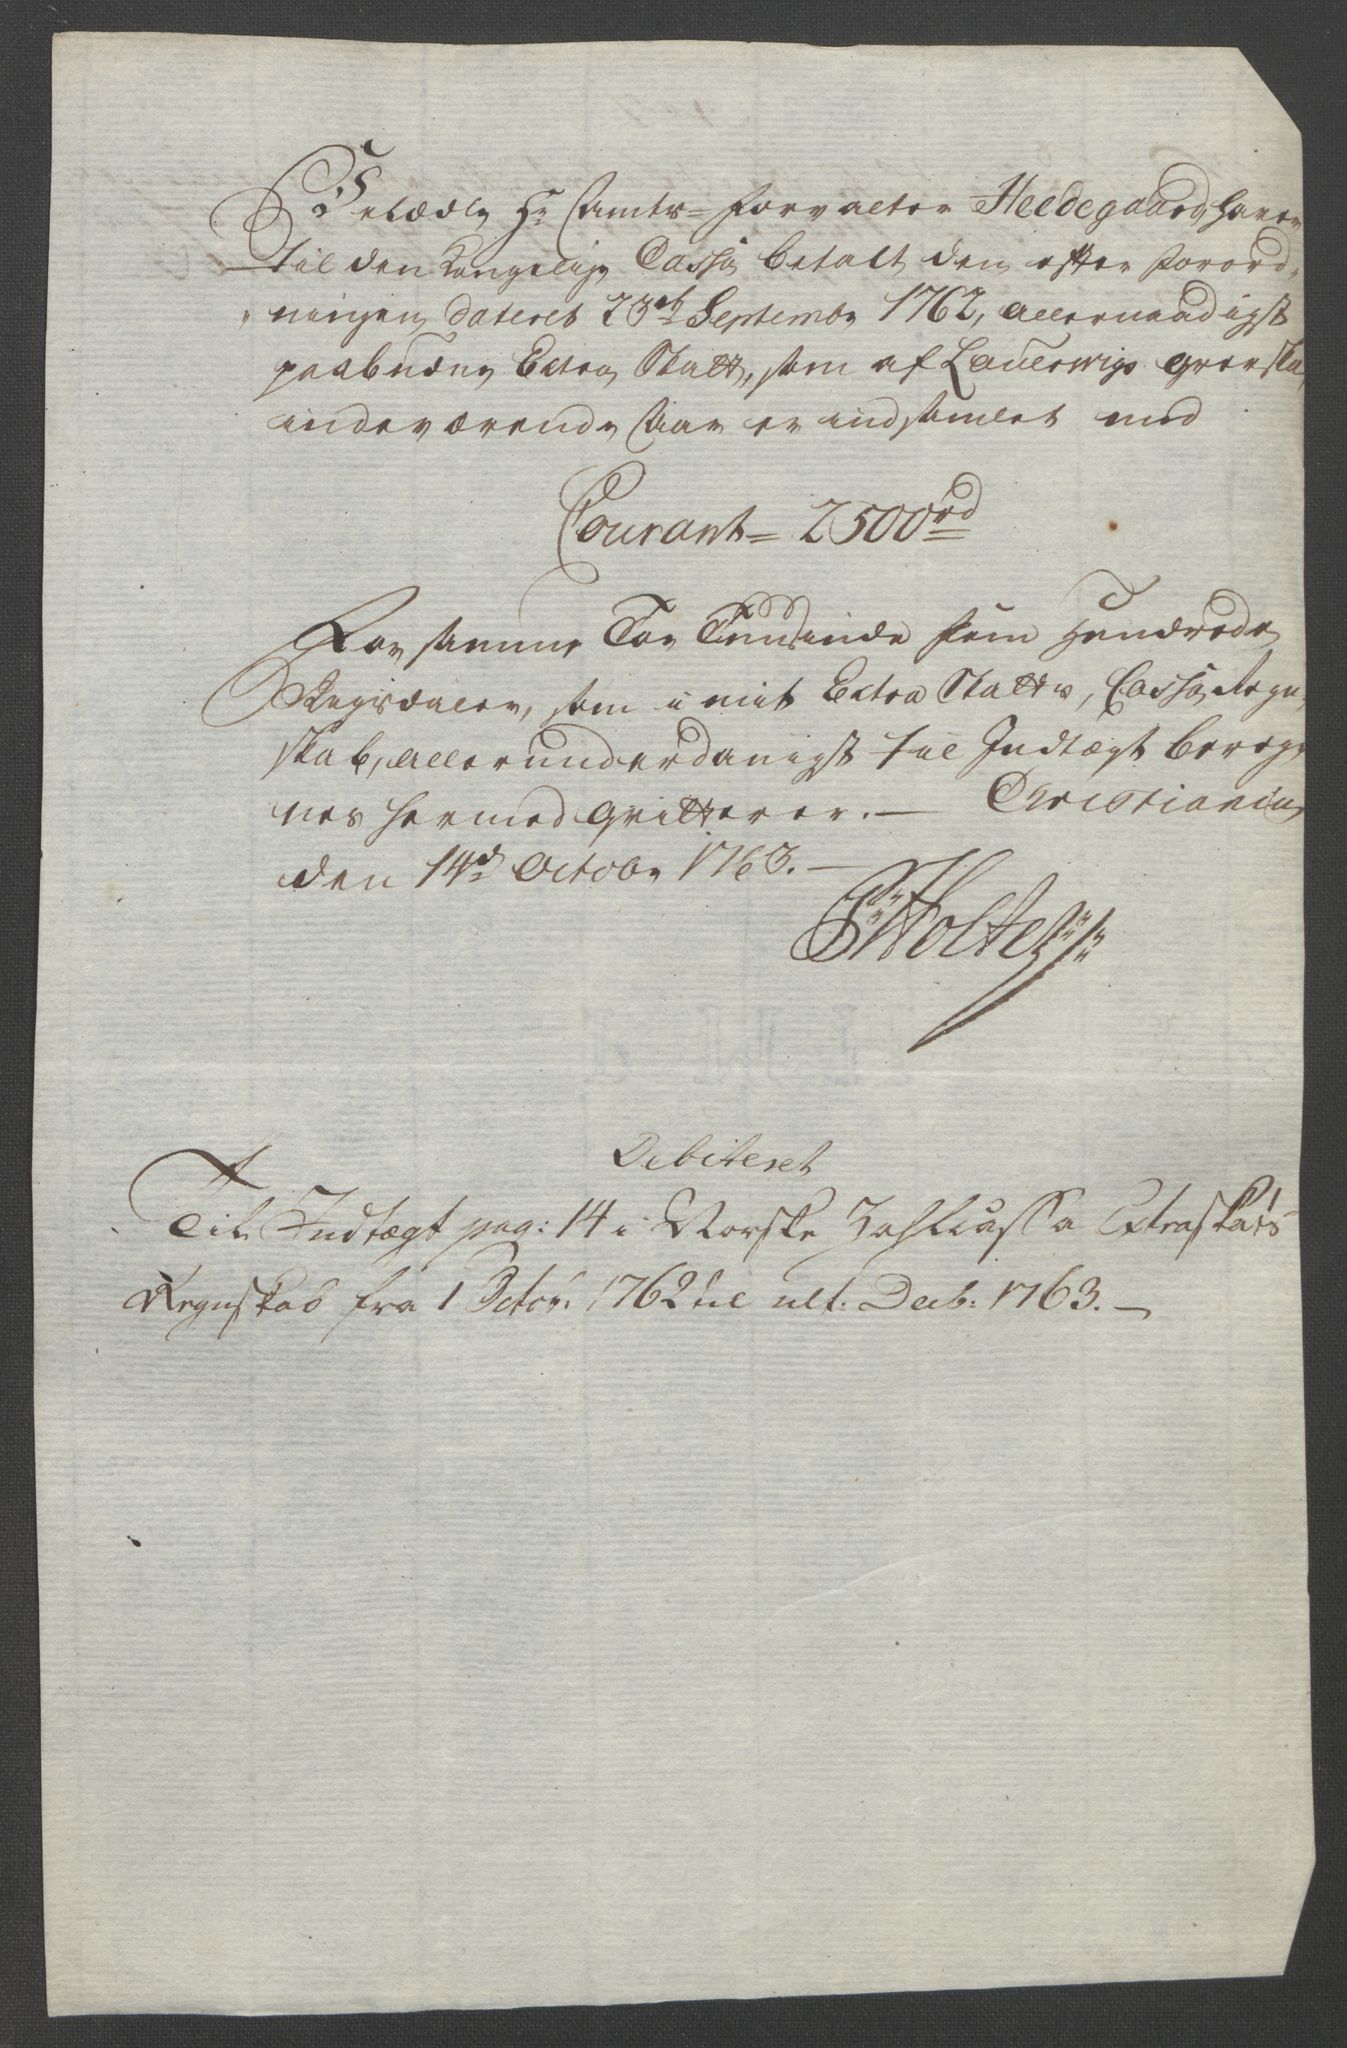 Velædle Hr Amts=Forvalter Heldegaard haver
til den Kongelige Cassa betalt den efter Forord-
ningen dateret 23de Septembr 1762, allernaadigst
paabudne Extra Skatt, som af Lauerwigs Grevska,
indeværende Aar er indsamlet med
Courant = 2500 rd
For samme Toe Tuusinde Fem Hundrede
Rigsdaler, som i mit Extra Skatts, Cassa Regn-
skab, allerunderdanigst til Indtægt bereg-
nes hermed qvitterer. — Christiania
den 14de Octobr 1763. —
Holte
Debiteret
Til Indtægt pag: 14 i Norske Zahlkassa Extraskats
Regnskab fra 1 Octobr: 1762 til ult: Decb: 1763. —